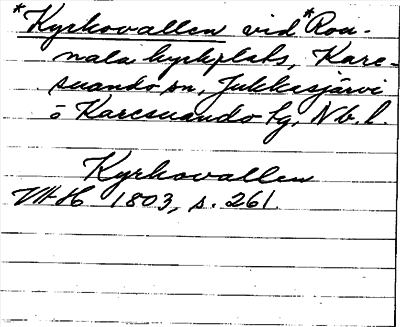 *Kyrkovallen vid *Rou-
nala kyrkplats, Kare-
suando sn, Jukkasjärvi
o Karesuando lg, Nb. l.
Kyrkovallen
VHAH 1803, s. 261.